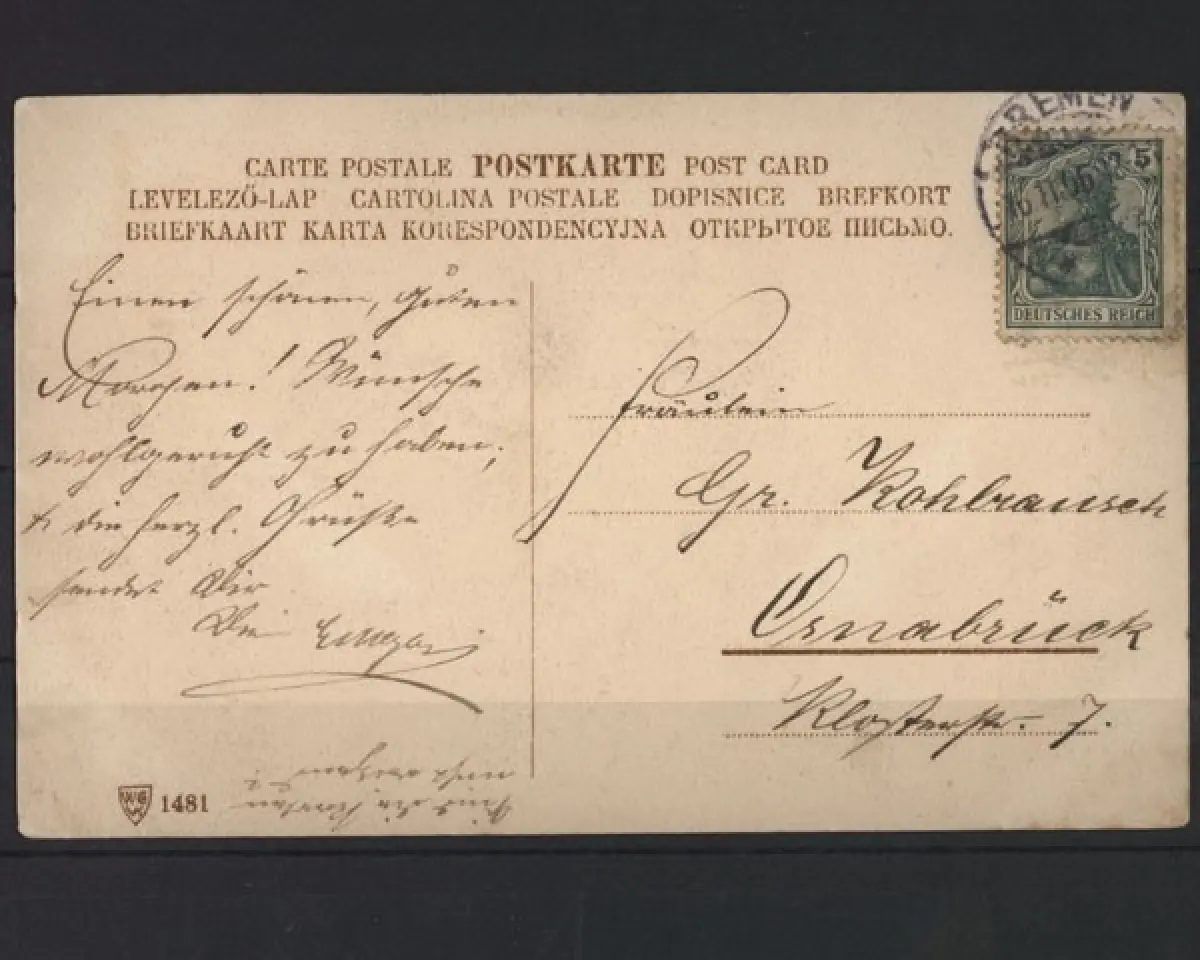 CARTE POSTALE POSTKARTE POST CARD
LEVELEZŐ-LAP CARTOLINA POSTALE DOPISNICE BREFKORT
BRIEFKAART KARTA KORESPONDENCYJNA ОТКРЫТОЕ ПИСЬМО.
BREMEN
16.11.06
5
DEUTSCHES REICH
Einen schönen, guten
Morgen! Wünsche
wohlgeruht zu haben,
die herzl. Grüße
sendet Dir
Fräulein
Gr. Kohlrausch
Osnabrück
Klosterstr. 7.
WG 1481
Sind die Karten
nicht reizend?